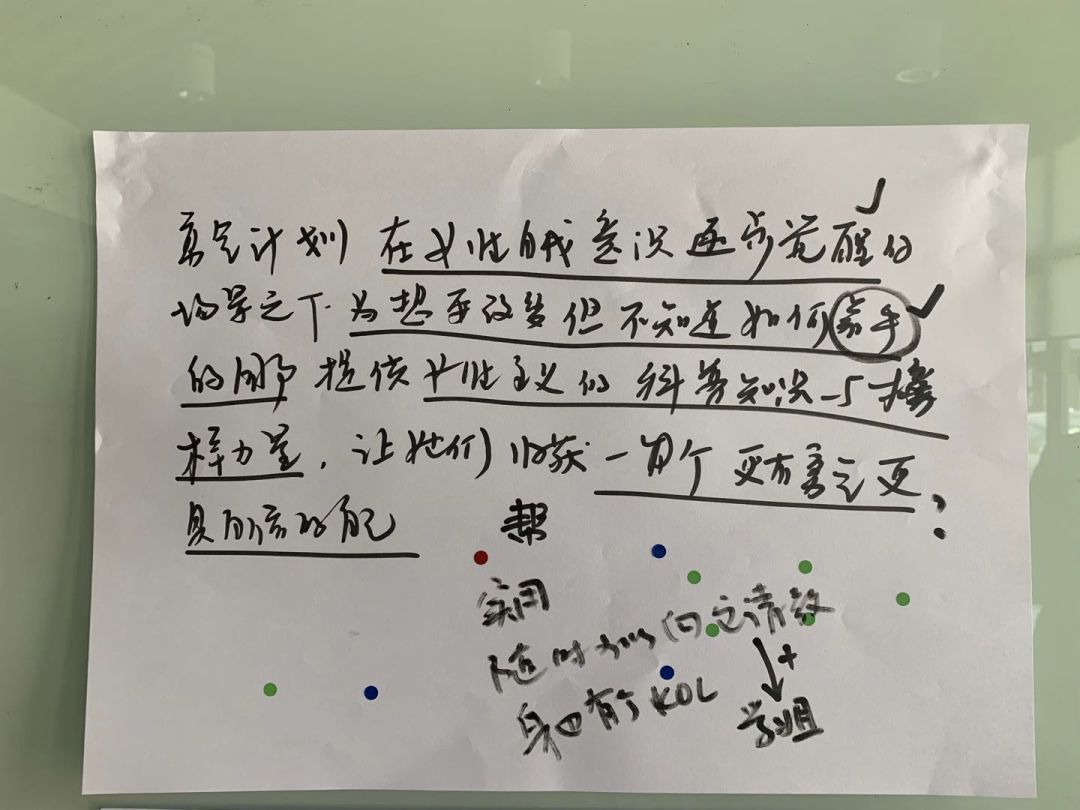 计划 在女性自我意识逐步觉醒的
场景之下 为想要改变但不知道如何着手
的用户 提供女性主义的 科普知识与榜
样力量, 让她们收获一个更有意定更
具的自己
帮
实用
随时可以向它请教
+
身边有个KOL
学姐